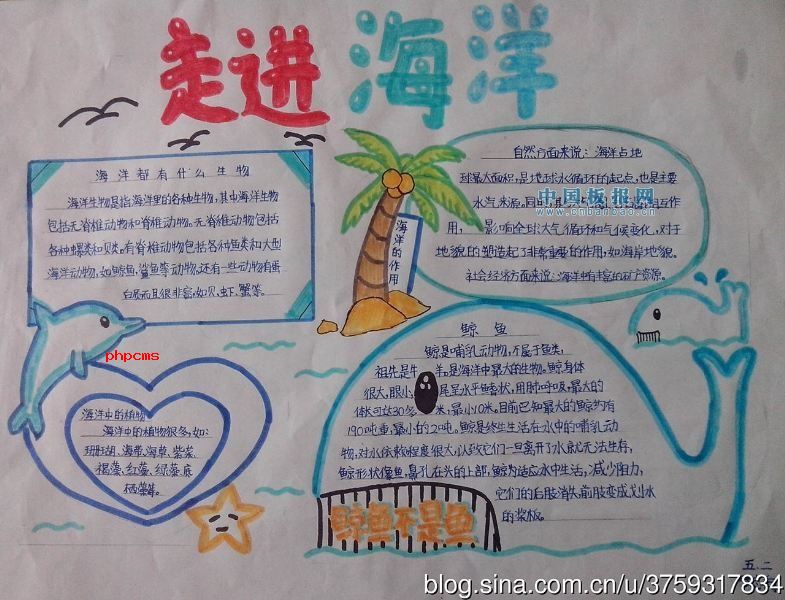 走进海洋
海洋都有什么生物
海洋生物是指海洋里的各种生物,其中海洋生物
包括无脊椎动物和脊椎动物。无脊椎动物包括
各种螺类和贝类。有脊椎动物包括各种鱼类和大型
海洋动物,如鲸鱼,鲨鱼等动物。还有一些动物有蛋
白质而且很非富。如贝、虾、蟹等。
海洋的作用
自然方面来说:海洋占地
球最大面积,是地球水循环的起点,也是主要
水气来源,同时
作
用,影响全球大气循环和气候变化,对于
地貌的塑造起了非常重要的作用,如海岸地貌。
社会经济方面来说:海洋中有丰富的矿产资源。
中国板报网
www.cnbanbao.cn
phpcms
海洋中的植物
海洋中的植物很多,如:
珊瑚、海带、海草、紫菜、
褐藻、红藻、绿藻、鹿
栖藻等。
鲸鱼
鲸是哺乳动物,不属于鱼类,
祖先是牛羊。是海洋中最大的生物。鲸身体
很大,眼小,尾呈水平鳍状,用肺呼吸,最大的
体长可达30多米,最小10米。目前已知最大的鲸约有
190吨重,最小的2吨。鲸是终生生活在水中的哺乳动
物,对水依赖程度很大,以致它们一旦离开了水就无法生存,
鲸形状像鱼,鼻孔在头的上部,鲸为适应水中生活,减少阻力,
它们的后肢消失,前肢变成划水
的桨板。
鲸鱼不是鱼
五.二
blog.sina.com.cn/u/3759317834